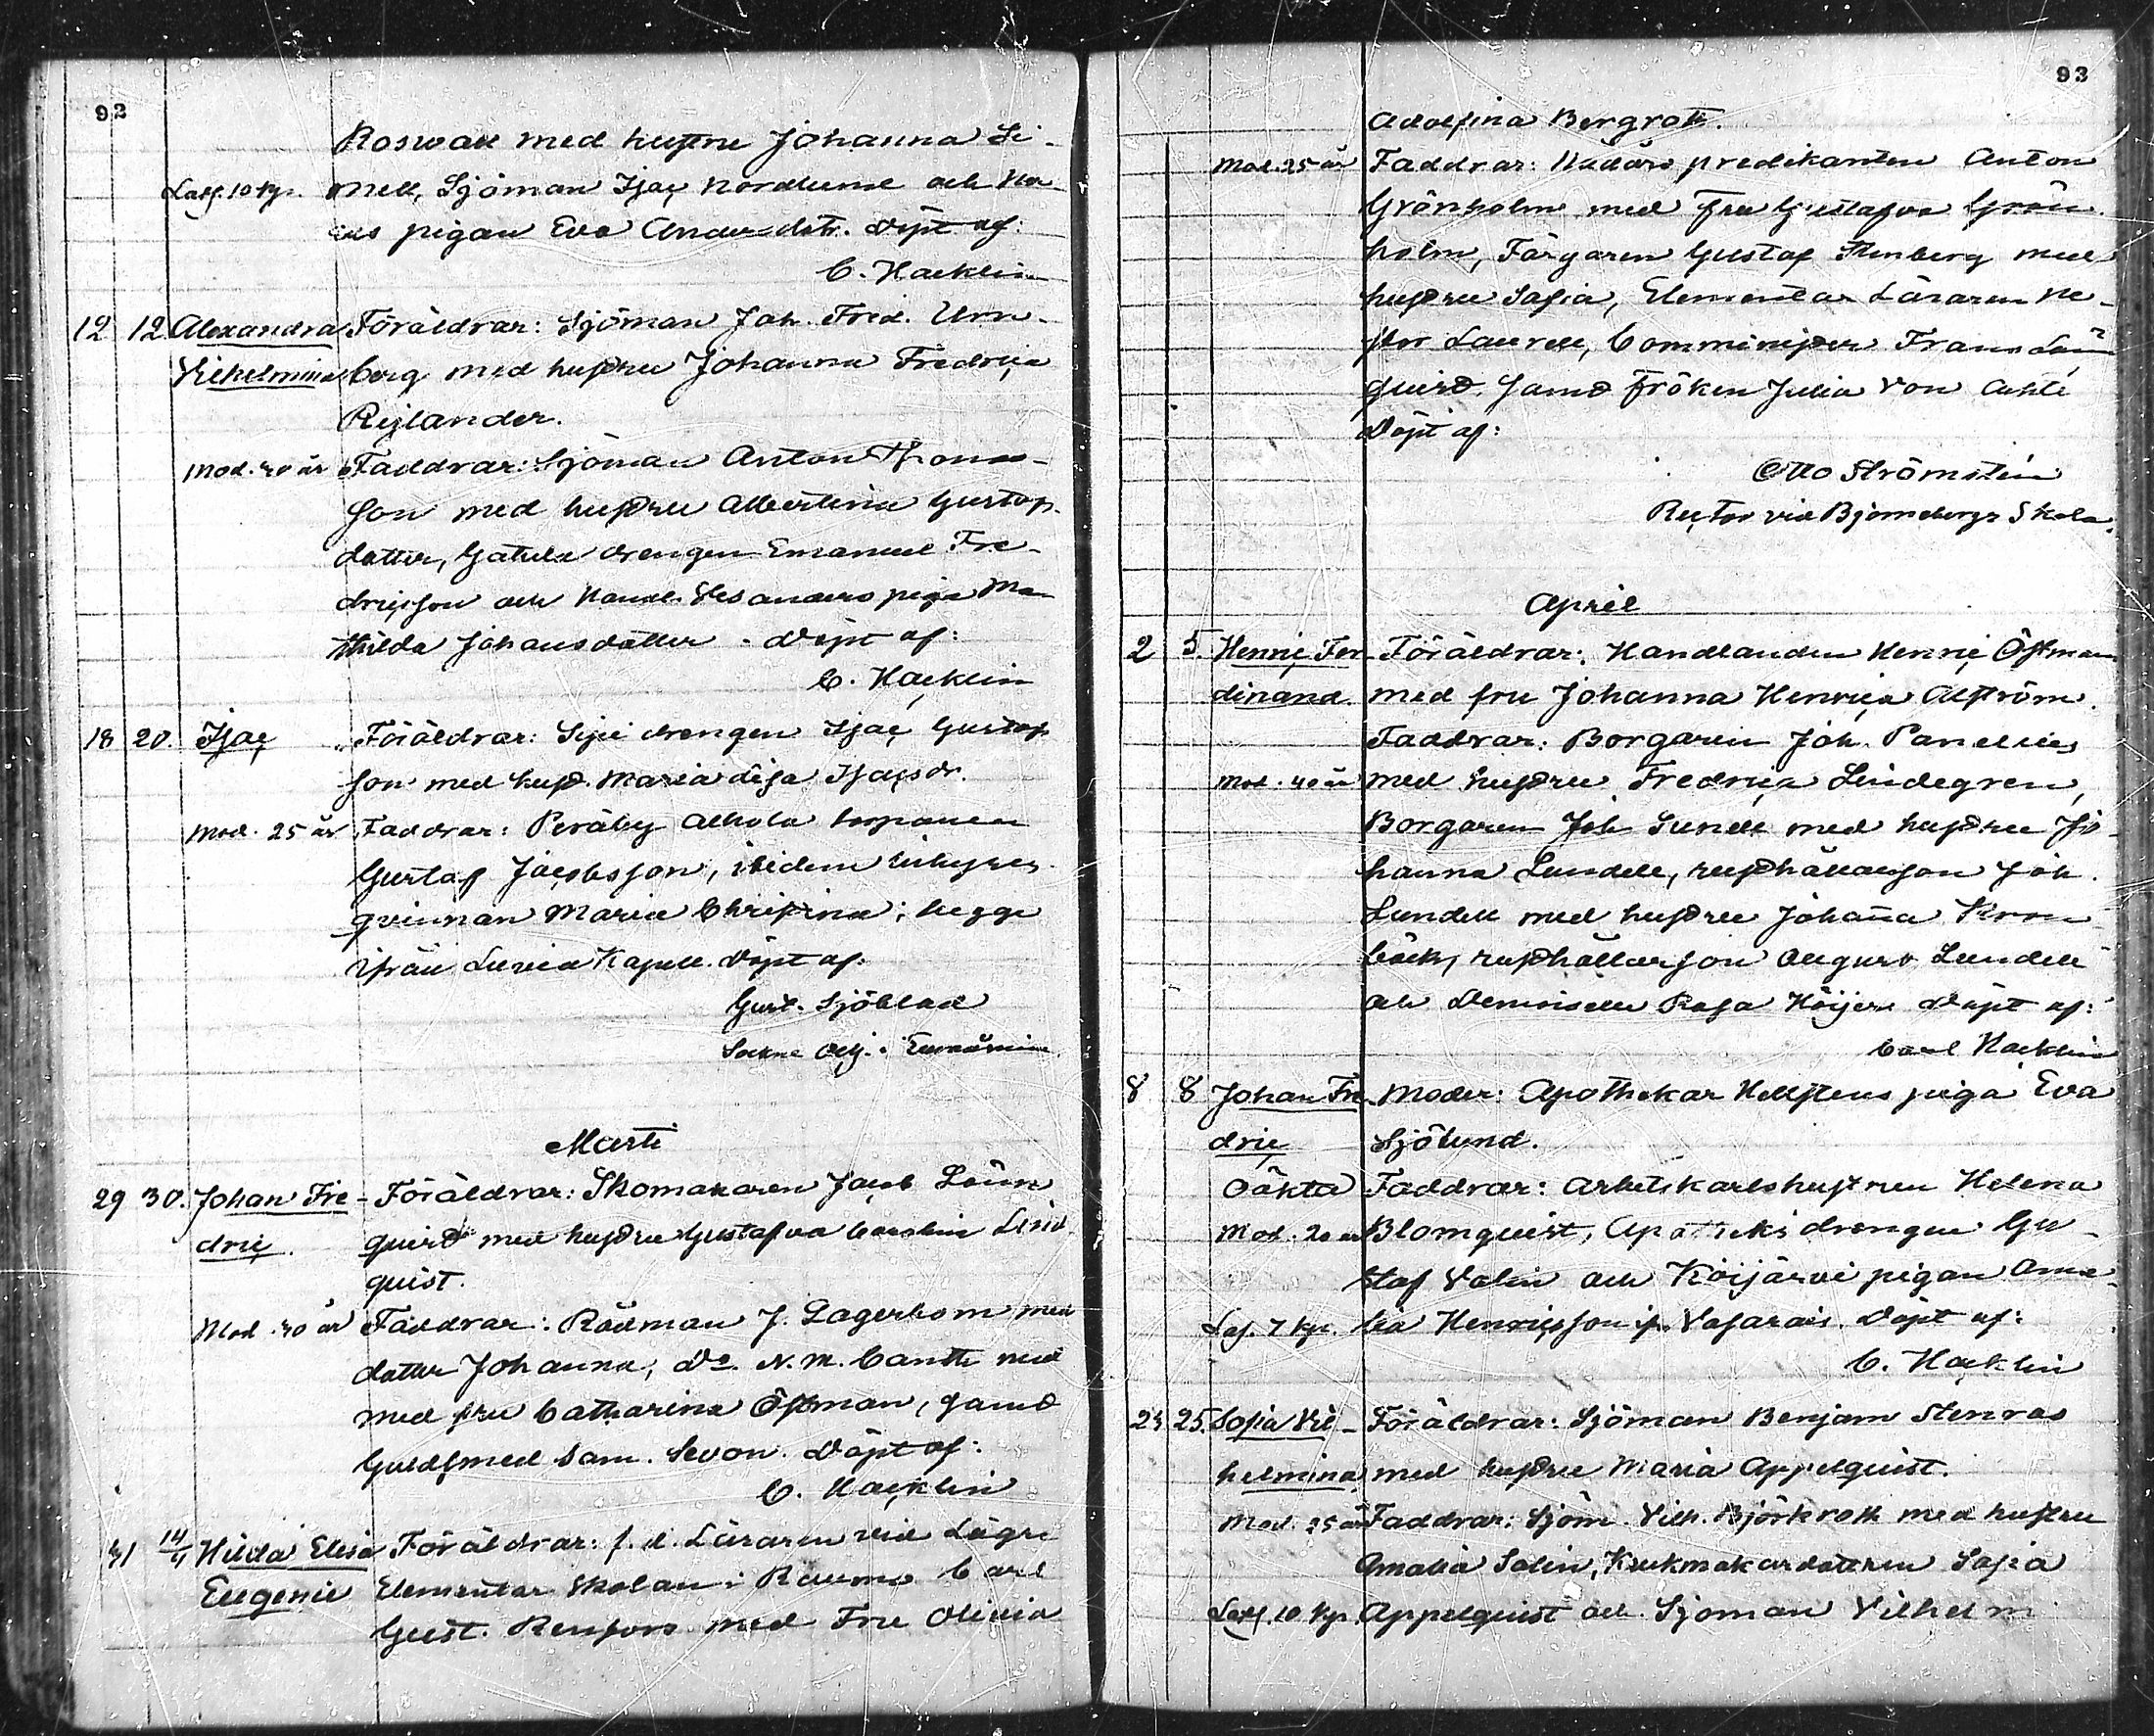 92
Roswall med hustru Johanna Si-
Lösf. 10 kp. mell, Sjöman Isac Nordlund och
pigan Eva Andersdtr. Döpt af:
C. Hacklin
12 12. Alexandra Föräldrar: Sjöman Joh. Fred. Urn-
Vilhelmina berg med hustru Johanna Fredrica
Rejlander.
Mod. 40 år Faddrar: Sjöman Anton Thomas-
son med hustru Albertina Gustaf-
dotter, drengen Emanuel Fre-
dricsson och Handl. piga Ma
thilda Johansdotter. Döpt af:
C. Hacklin
18 20. Isac Föräldrar: drengen Isac Gustaf
son med hust. Maria Lisa Isacsdr.
Mod. 25 år Faddrar: Peräby torparen
Gustaf Jacobsson, ibidem inhyses
qvinnan Maria Christina; begge
ifrån Luvia Kapell. Döpt af:
Gust. Sjöblad
Sockne Adj. i Euraåminne
Marti
29 30. Johan Fre- Föräldrar: Skomakaren Jacob Lönn
dric. quist med hustru Gustafva Carolin Lind
quist.
Mod. 40 år Faddrar: Rådman J. Lagerbom med
dotter Johanna, Do. N. M. Canth med
med fru Catharina Östman, samt
Guldsmed Sam. Sevon. Döpt af:
C. Hacklin
31 14/4 Hilda Elisa Föräldrar: f. d. Läraren vid Lägre
Eugenie Elementar Skolan i Raumo Carl
Gust. Renfors med Fru Olivia
93
Adolfina Bergroth.
Mod. 25 år Faddrar: predikanten Anton
Grönholm med fru Gustafva Grön
holm, Färgaren Gustaf Stenberg med
hustru Sofia, Elementar Läraren Ne-
stor Laurell, Comminister Frans Lönn
quist, samt fröken Julia von
Döpt af:
Otto Strömsten
Rector vid Björneborgs Skola.
April
2 5. Henric Fer- Föräldrar: Handlanden Henric Östman
dinand. med fru Johanna Henrica Alström.
Faddrar: Borgaren Joh. Panelius
Mod. 40 år med hustru Fredrica Lindegren,
Borgaren Joh Sundell med hustru Jo
hanna Lundell, rusthållarson Joh.
Lundell med hustru Johanna Kron
bäck, rusthållarson August Lundell
och Demoiselle Rosa Höijer. Döpt af:
Carl Hacklin
8 8 Johan Fre- Moder: Apothekar Hellstens piga Eva
dric Sjölund.
Oäkta Faddrar: Arbetskarlshustrun Helena
Mod. 20 år Blomquist, Apotheks drengen Gu-
staf Valin och Köijärvi pigan Ama-
Lösf. 7 kp. lia Henricsson fr. Vasarais. Döpt af:
C. Hacklin
23 25. Sofia Vil- Föräldrar: Sjöman Benjam Stenroos
helmina med hustru Maria Appelquist.
Mod. 25 år Faddrar: Sjöm. Vilh. Björkroth med hustru
Amalia Salin, Krukmakardottren Sofia
Lösf. 10 kp. Appelquist och Sjöman Vilhelm